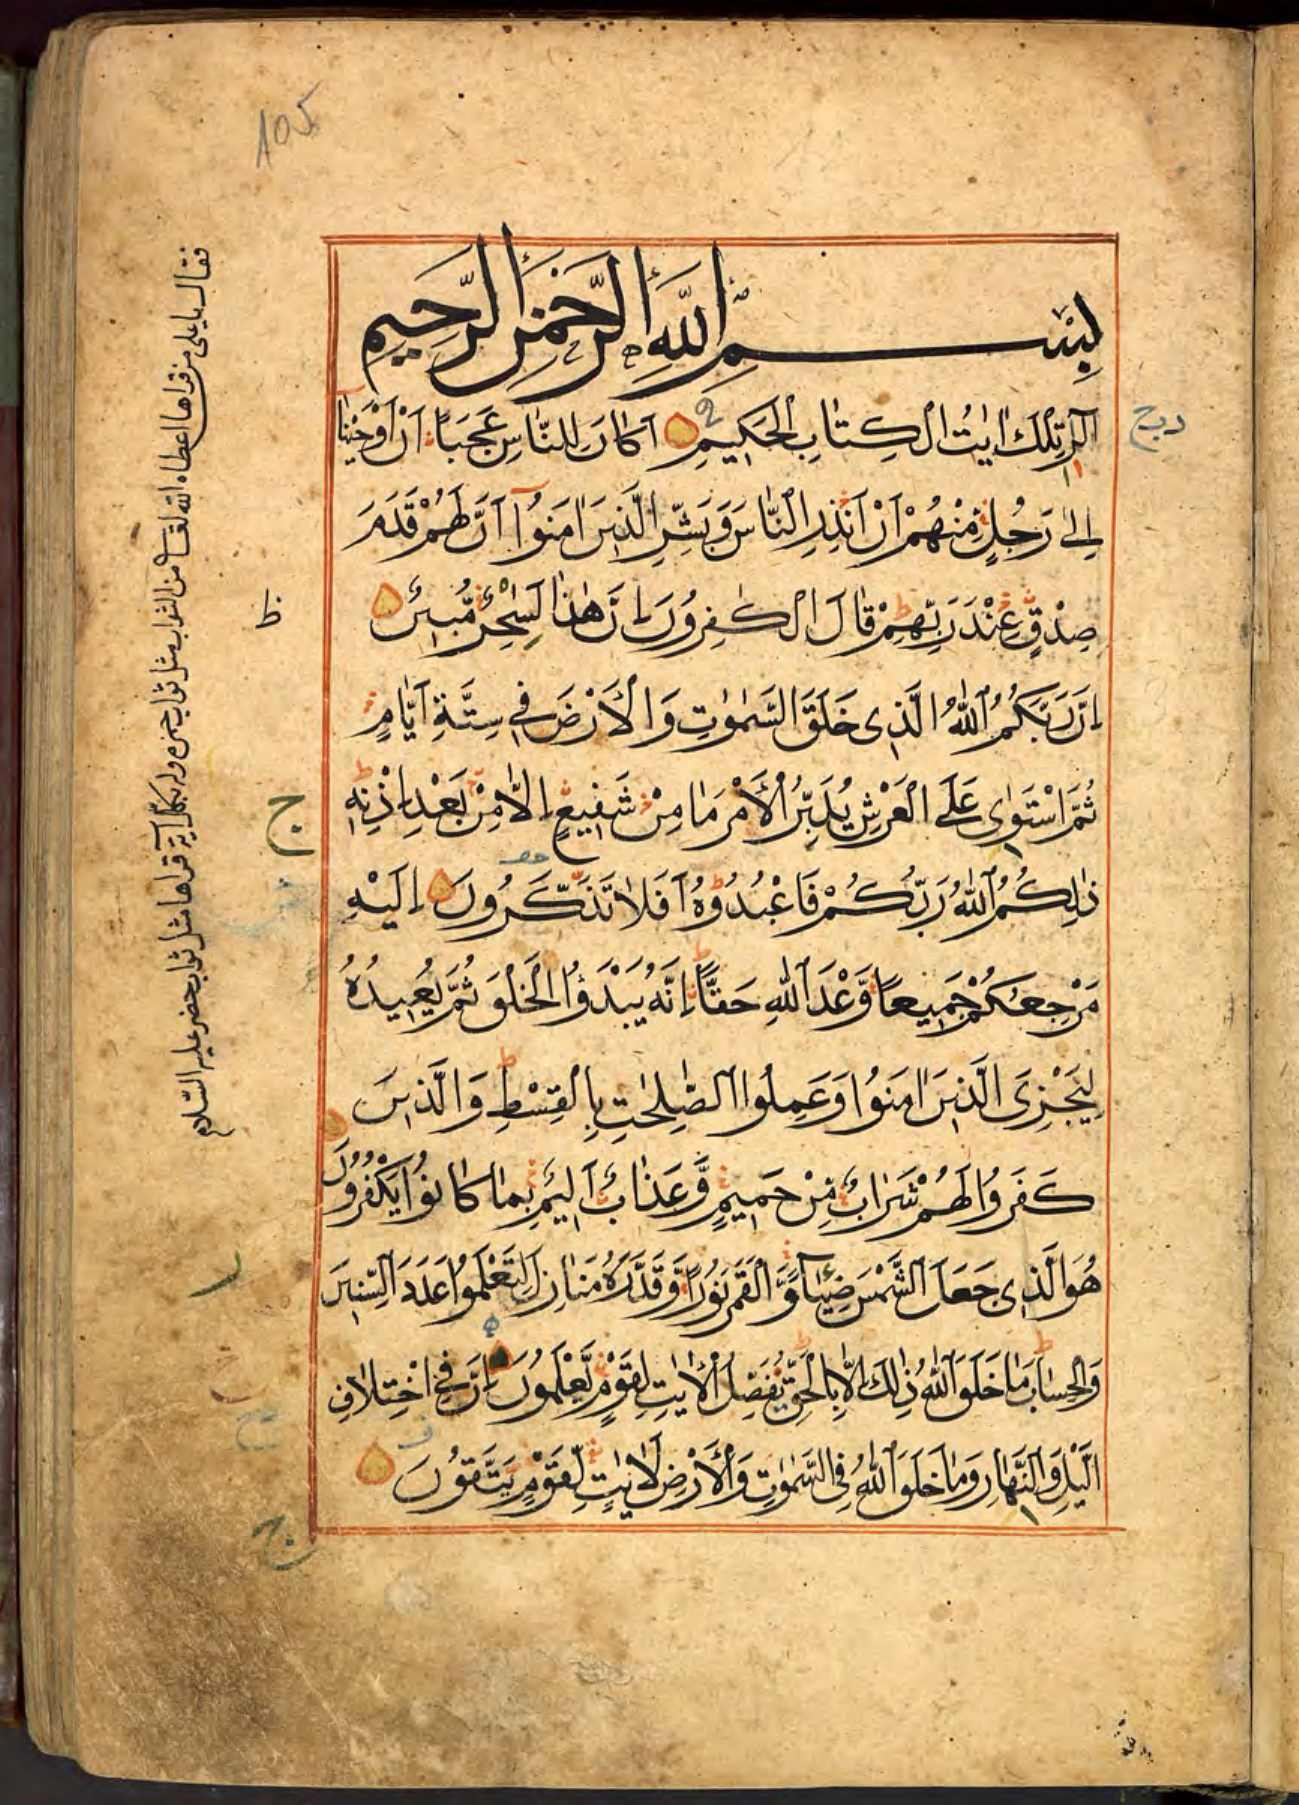 105
بِسْمِ اللَّهِ الرَّحْمٰنِ الرَّحِيمِ
الٓرٰ تِلْكَ اٰيٰتُ الْكِتَابِ الْحَكِيمِ اَكَانَ لِلنَّاسِ عَجَبًا اَنْ اَوْحَيْنَآ
اِلٰى رَجُلٍ مِنْهُمْ اَنْ اَنْذِرِ النَّاسَ وَبَشِّرِ الَّذِينَ اٰمَنُوٓا اَنَّ لَهُمْ قَدَمَ
صِدْقٍ عِنْدَ رَبِّهِمْ قَالَ الْكٰفِرُونَ اِنَّ هٰذَا لَسٰحِرٌ مُبِينٌ
اِنَّ رَبَّكُمُ اللّٰهُ الَّذِى خَلَقَ السَّمٰوٰتِ وَالْاَرْضَ فِى سِتَّةِ اَيَّامٍ
ثُمَّ اسْتَوٰى عَلَى الْعَرْشِ يُدَبِّرُ الْاَمْرَ مَا مِنْ شَفِيعٍ اِلَّا مِنْ بَعْدِ اِذْنِهِ
ذٰلِكُمُ اللّٰهُ رَبُّكُمْ فَاعْبُدُوهُ اَفَلَا تَذَكَّرُونَ اِلَيْهِ
مَرْجِعُكُمْ جَمِيعًا وَعْدَ اللّٰهِ حَقًّا اِنَّهُ يَبْدَؤُا الْخَلْقَ ثُمَّ يُعِيدُهُ
لِيَجْزِىَ الَّذِينَ اٰمَنُوا وَعَمِلُوا الصّٰلِحٰتِ بِالْقِسْطِ وَالَّذِينَ
كَفَرُوا لَهُمْ شَرَابٌ مِنْ حَمِيمٍ وَّعَذَابٌ اَلِيمٌ بِمَا كَانُوا يَكْفُرُونَ
هُوَ الَّذِى جَعَلَ الشَّمْسَ ضِيَآءً وَّالْقَمَرَ نُورًا وَّقَدَّرَهُ مَنَازِلَ لِتَعْلَمُوا عَدَدَ السِّنِينَ
وَالْحِسَابَ مَا خَلَقَ اللّٰهُ ذٰلِكَ اِلَّا بِالْحَقِّ يُفَصِّلُ الْاٰيٰتِ لِقَوْمٍ يَّعْلَمُونَ اِنَّ فِى اخْتِلَافِ
الَّيْلِ وَالنَّهَارِ وَمَا خَلَقَ اللّٰهُ فِى السَّمٰوٰتِ وَالْاَرْضِ لَاٰيٰتٍ لِّقَوْمٍ يَتَّقُونَ
فقال يا على من قراها اعطاه الله تعالى من الثواب مثل ثواب حمزه وله بكل آية قراها مثل ثواب خضر عليه السلام
ط
ج